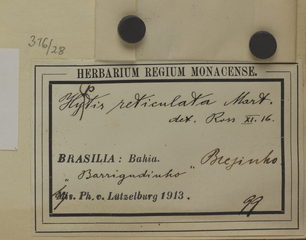 376/28
HERBARIUM REGIUM MONACENSE.
Hyptis reticulata Mart.
det. Ross XI. 16.
BRASILIA: Bahia. Brejinho.
„Barrigudinho“
Ph. v. Lützelburg 1913.